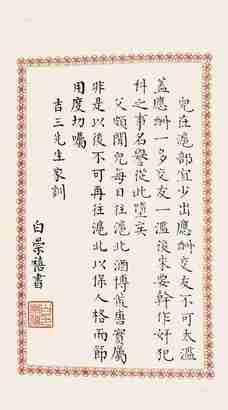 兒在滬部宜少出應酬交友不可太濫
蓋應酬一多交友一濫後來要幹作奸犯
科之事名譽從此墮矣
父頗聞兒每日往滬北酒博荒唐實屬
非是以後不可再往滬北以保人格而節
用度切囑
吉三先生家訓
白崇禧書